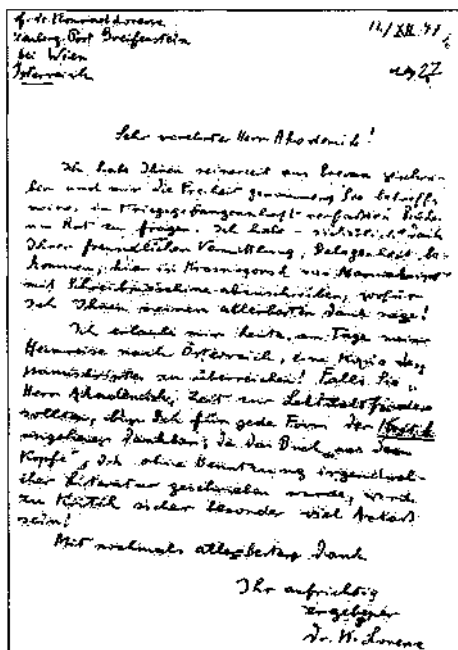 Dr. Konrad Lorenz
Post Greifenstein
bei Wien
Österreich
12/XII 47
27
Sehr verehrter Herr Akademik!
Ich habe Ihnen seinerzeit aus Erevan geschrie-
ben und mir die Freiheit genommen, Sie betreffs
meines, in Kriegsgefangenschaft verfaßten Buches
um Rat zu fragen. Ich habe - sicherlich dank
Ihrer freundlichen Vermittlung, Gelegenheit be-
kommen, hier in Krasnogorsk
mit Schreibmaschine abzuschreiben, wofür
ich Ihnen meinen allerbesten Dank sage!
Ich erlaube mir heute, am Tage meiner
Heimreise nach Österreich, eine Kopie des
Manuskriptes zu überreichen! Falls Sie,
Herr Akademik, Zeit zur Lektüre finden
sollten, bin ich für jede Form der Kritik
ungeheuer dankbar; da das Buch "aus dem
Kopfe", d.h. ohne Benutzung irgendwel-
cher Literatur geschrieben wurde, wird
zu Kritik sicher besonder viel Anlaß
sein!
Mit nochmals allerbestem Dank
Ihr aufrichtig
ergebener
Dr. K. Lorenz